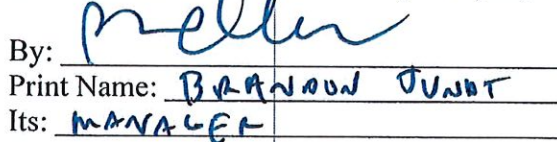 By:
Print Name: BRANDON JUNDT
Its: MANAGER